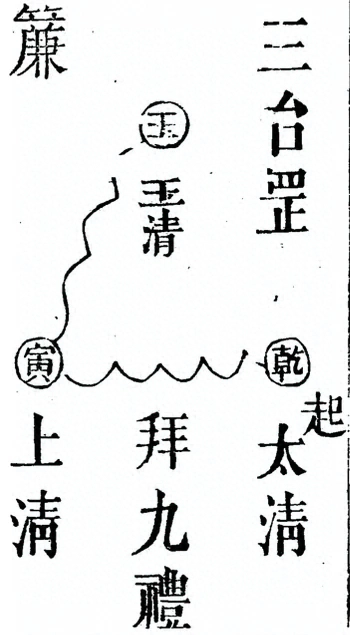 三台罡
乾
起
太清
玉
玉清
拜九禮
簾
寅
上清